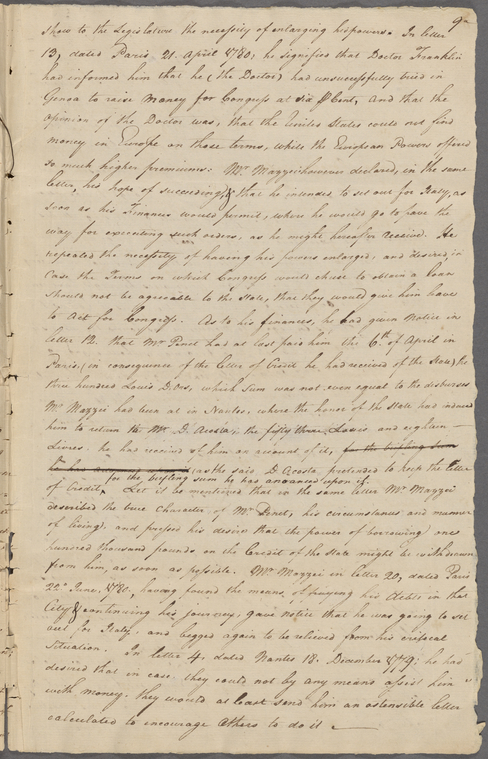 9
show to the Legislature the necessity of enlarging his powers. In letter
13, dated Paris, 21. April 1780; he signifies that Doctor Franklin
had informed him that he (the Doctor) had unsuccessfully tried in
Genoa to raise Money for Congress at six P Cent, and that the
opinion of the Doctor was, that the United States could not find
money in Europe on those terms, while the European Powers offered
so much higher premiums. Mr. Mazzei however declared, in the same
letter, his hope of succeeding, & that he intended to set out for Italy, as
soon as his Finances would permit, where he would go to pave the
way for executing such orders, as he might hereafter receive. He
repeated the necessity of having his powers enlarged, and desired, in
Case the Terms on which Congress would chuse to obtain a Loan
should not be agreeable to the State, that they would give him leave
to Act for Congress. As to his finances, he had given Notice in
letter 12. that Mr Penet had at last paid him the 6th of April in
Paris, (in consequence of the letter of Credit he had received of the State) the
three hundred Louis D'Ors, which sum was not even equal to the disburses
Mr. Mazzei had been at in Nantes, where the honor of the State had induced
him to return the Mr. D. Acosta, the fifty three Louis and eighteen
Livres, he had received of him on account of it, for the trifling sum
he had announced upon it (as the said D. Acosta pretended to keep the letter
for the trifling sum he had advanced upon it.
of Credit. Let it be mentioned that in the same letter Mr Mazzei
described the true Character of Mr. Penet, his circumstances and manner
of living, and pressed his desire that the power of borrowing one
hundred thousand pounds on the Credit of the State might be withdrawn
from him, as soon as possible. Mr. Mazzei in letter 20, dated Paris
22d June, 1780, having found the means of paying his Debts in that
City & continuing his journey, gave notice that he was going to set
out for Italy, and begged again to be relieved from his critical
Situation. In letter 4, dated Nantes 18. December 1779; he had
desired that in case they could not by any means assist him
with money, they would at least send him an ostensible letter
calculated to encourage others to do it